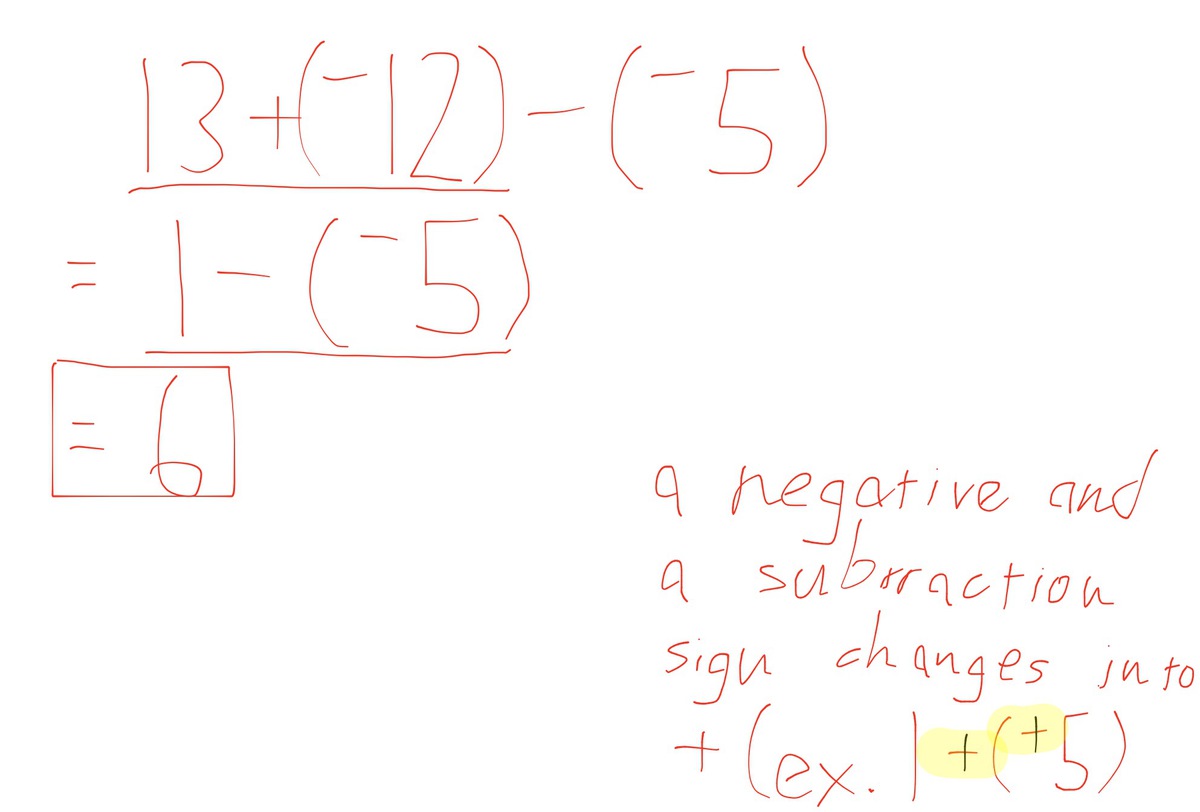 13 + (⁻12) - (⁻5)
= 1 - (⁻5)
= 6
a negative and
a subtraction
sign changes into
+ (ex. 1 + (⁺5)